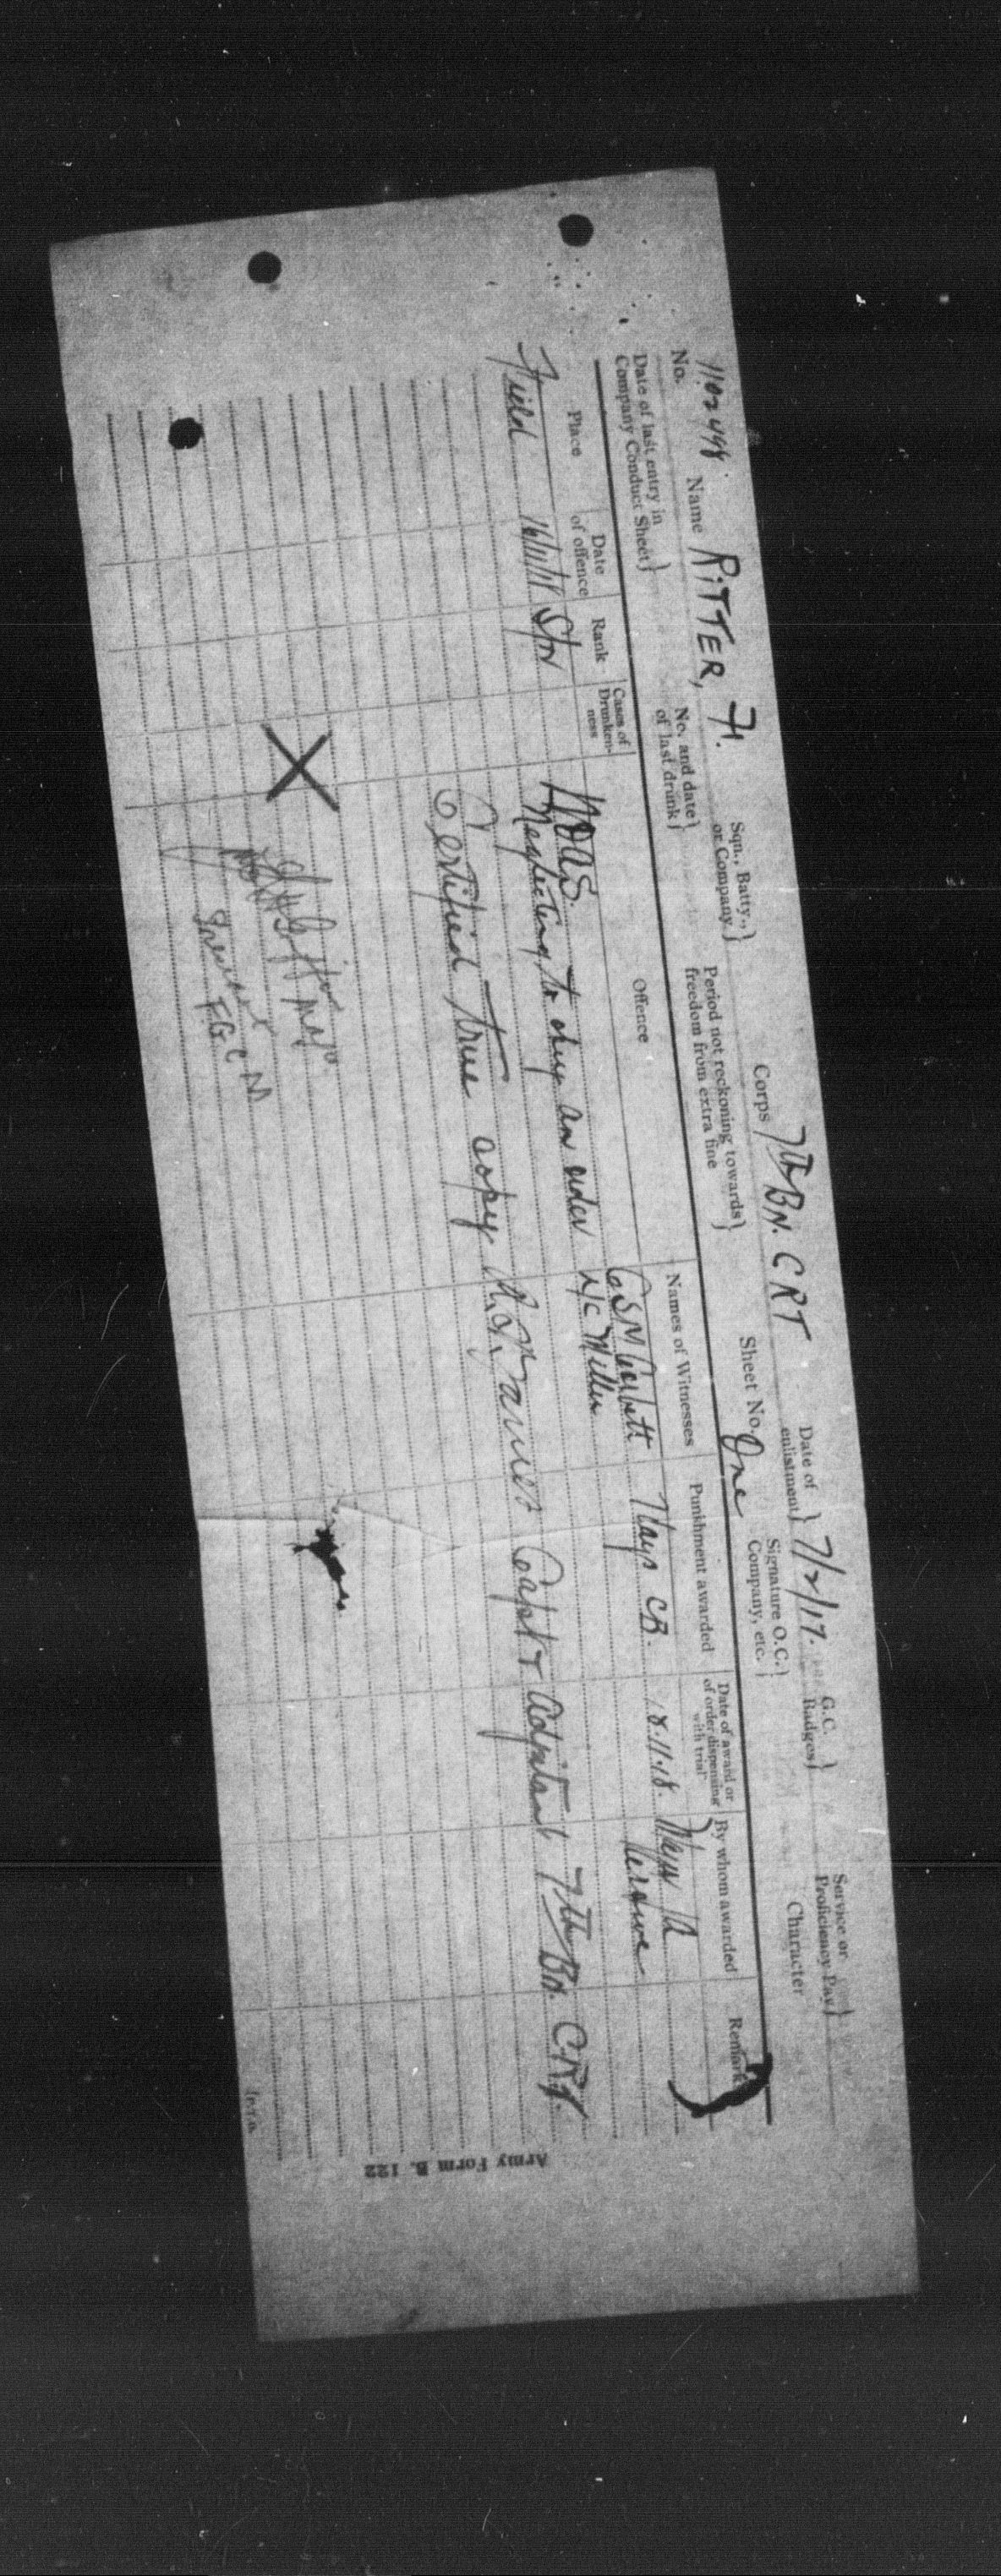 No. Name RITTER, H. Sqn., Batty., or Company} Corps 7th BN. CRT Date of enlistment} 7/2/17. G.C. Badges} Service or Proficiency Pay}
Date of last entry in Company Conduct Sheet} No. and date of last drunk} Period not reckoning towards freedom from extra fine} Sheet No. One Signature O.C. Company, etc.} Character
Place Date of offence Rank Cases of Drunken-ness Offence Names of Witnesses Punishment awarded Date of award or of order dispensing with trial By whom awarded Remarks
Field 16/11/18 Spr WOAS. CSM Corbett 7 days CB. 18.11.18. Major
Neglecting to obey an order Miller
Certified true copy Capt & Adjutant 7th Bn. C.R.T.
X
Major
President
F.G.C.M
Army Form B. 122